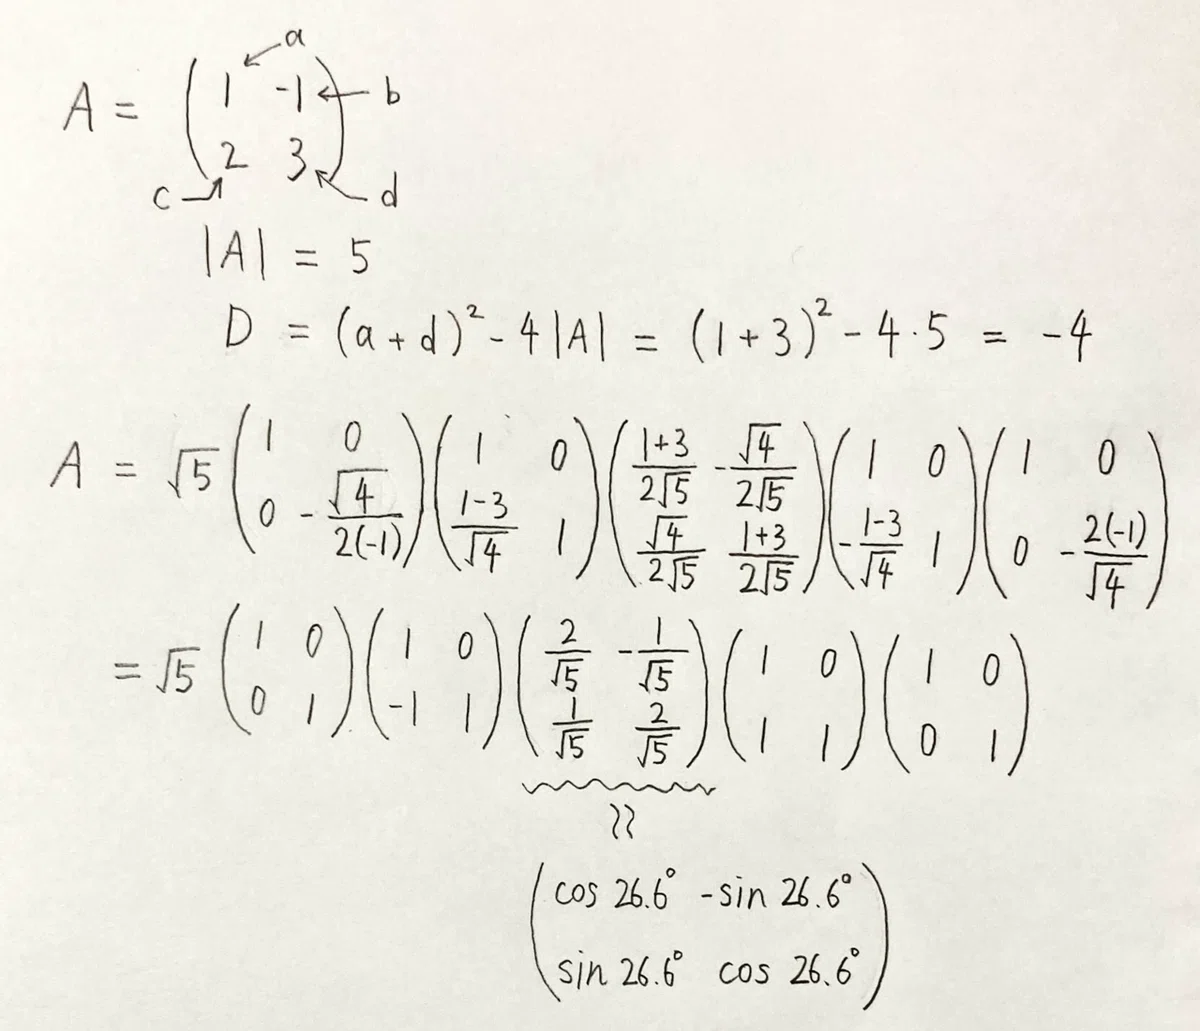 a
A = ( 1 -1 ) ← b
( 2 3 )
c d
|A| = 5
D = (a+d)² - 4|A| = (1+3)² - 4·5 = -4
A = √5 ( 1 0 ; 0 -√4/2(-1) ) ( 1 0 ; 1-3/√4 1 ) ( 1+3/2√5 -√4/2√5 ; √4/2√5 1+3/2√5 ) ( 1 0 ; -1-3/√4 1 ) ( 1 0 ; 0 -2(-1)/√4 )
= √5 ( 1 0 ; 0 1 ) ( 1 0 ; -1 1 ) ( 2/√5 -1/√5 ; 1/√5 2/√5 ) ( 1 0 ; 1 1 ) ( 1 0 ; 0 1 )
≈
( cos 26.6° -sin 26.6° )
( sin 26.6° cos 26.6° )